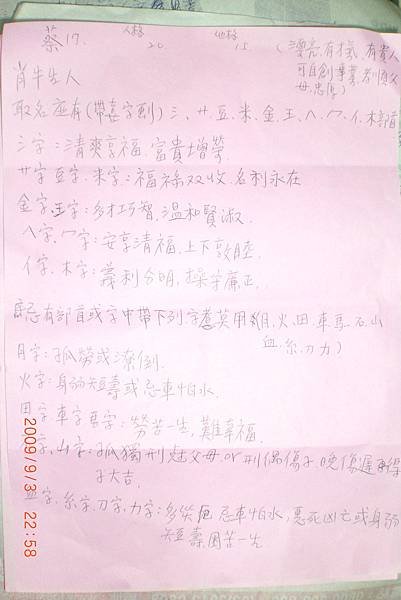 蔡17. 人格20 地格15 (漂亮,有才氣,有貴人
可自創事業,孝順父
母,忠厚)
肖牛生人
取名應有(帶喜字劃) 氵、艹、豆、米、金、王、人、宀、亻、木部首
氵字：清爽享福,富貴增榮.
艹字豆字、米字：福祿双收,名利永在
金字,王字：多才巧智,溫和賢淑.
人字、宀字：安享清福,上下敦睦.
亻字、木字：義利分明,操守廉正.
忌有部首或字中帶下列字者莫用(月、火、田、車、馬、石、山
血、糸、刀、力)
月字：孤勞或潦倒.
火字：身弱短壽或忌車怕水.
田字車字馬字：勞苦一生,難幸福.
字、山字：孤獨刑尅父母or刑偶傷子晚婚遲得
子大吉.
血字、糸字、刀字、力字：多災厄忌車怕水,惡死凶亡或身弱
短壽,困苦一生.
2009/9/9 22:58